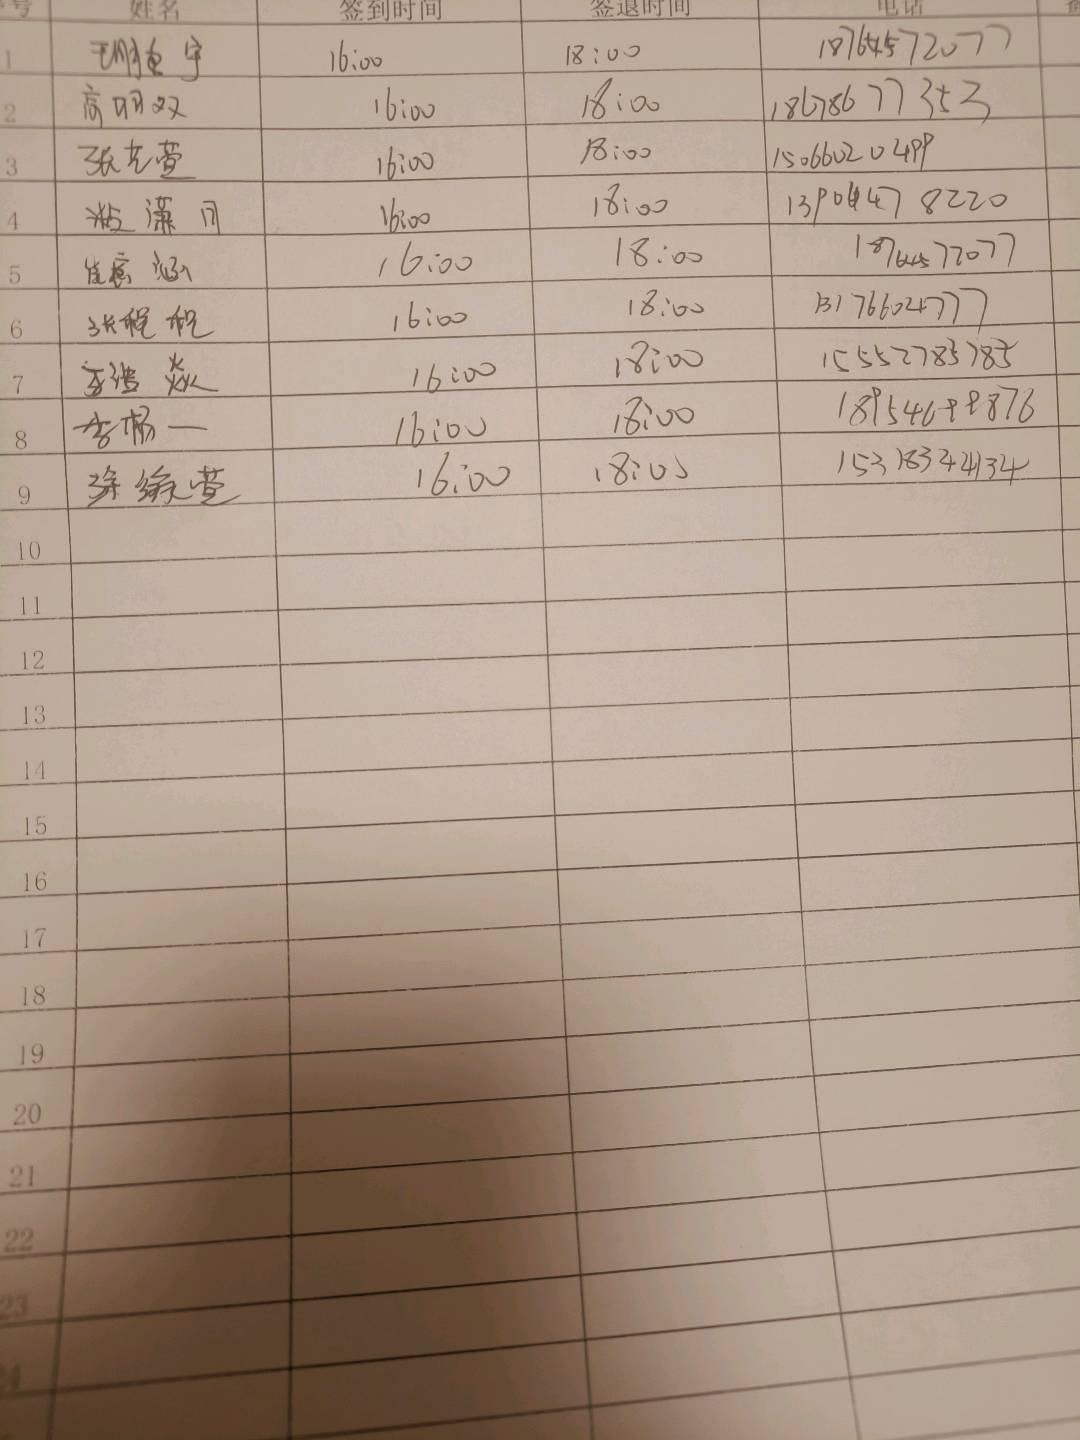 序号 姓名 签到时间 签退时间 电话 备
1 16:00 18:00 18764572077
2 高明双 16:00 18:00 18678677353
3 张艺萱 16:00 18:00 15066020499
4 潇月 16:00 18:00 13904478220
5 涵 16:00 18:00 18764572077
6 张程程 16:00 18:00 13176604777
7 焱 16:00 18:00 15552785785
8 李杨一 16:00 18:00
9 萱 16:00 18:00 15318344134
10
11
12
13
14
15
16
17
18
19
20
21
22
23
24